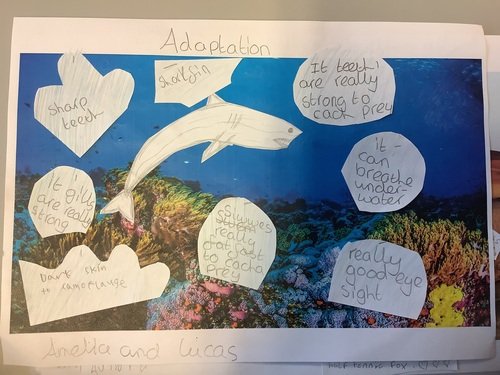 Adaptation
sharp
teeth
Sharkfin
It teeth
are really
strong to
cach prey
It
can
breathe
under-
water
It gills
are really
strong
really
fast
to
prey
Dark skin
to camoflauge
really
good eye
sight
Amelia and Lucas